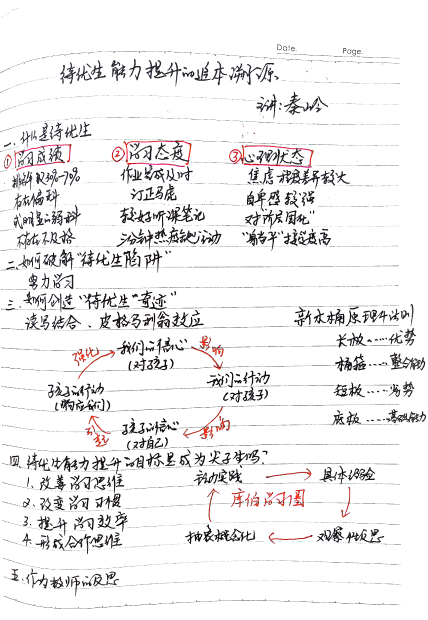 Date.
Page.
待优生能力提升的追本溯源
主讲:秦岭
一、什么是待优生
①学习成绩 ②学习态度 ③心理状态
作业完成及时
存在偏科
订正马虎
自卑感较强
或明显的弱科
较好听课笔记
不存在不及格
三分钟热度
二、如何破解"待优生陷阱"
努力学习
三、如何创造"待优生"奇迹"
读写结合、皮格马利翁效应
新木桶原理与法则
长板……优势
桶箍……整合能力
短板……劣势
底板……基础能力
强化
我们的信心
(对孩子)
影响
我们的行动
(对孩子)
影响
孩子的信心
(对自己)
引起
孩子的行动
四、待优生能力提升的目标是成为尖子生吗?
1、改善学习思维
2、改变学习习惯
3、提升学习效率
4、形成合作思维
行动实践
具体经验
库伯学习圈
抽象概念化
观察和反思
五、作为教师的反思